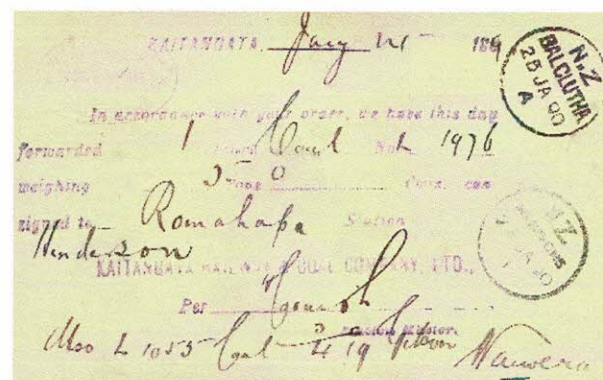 KAITANGATA, Jany 189
N.Z
BALCLUTHA
25 JA 90
A
In accordance with your order, we have this day
forwarded 1 Coal No. L 1976
weighing 5 Tons 0 Cwts. con
signed to Romahapa Station
Henderson
N Z
KAITANGATA RAILWAY & COAL COMPANY, LTD.,
Per
Station Master.
Also L 1055 Coal 4 19 Gibson Waiwera